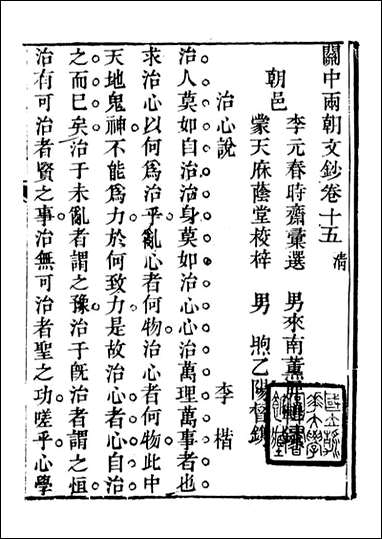 關中兩朝文鈔卷十五 清
李元春時齋彙選 男來南薰屏
朝邑
蒙天庥蔭堂校梓 男 煦乙陽督鐫
治心說 李楷
治人莫如自治治身莫如治心心治萬理萬事者也
求治心以何爲治乎亂心者何物治心者何物此中
天地鬼神不能爲力於何致力是故治心者心自治
之而已矣治于未亂者謂之豫治于旣治者謂之恒
治有可治者賢之事治無可治者聖之功嗟乎心學